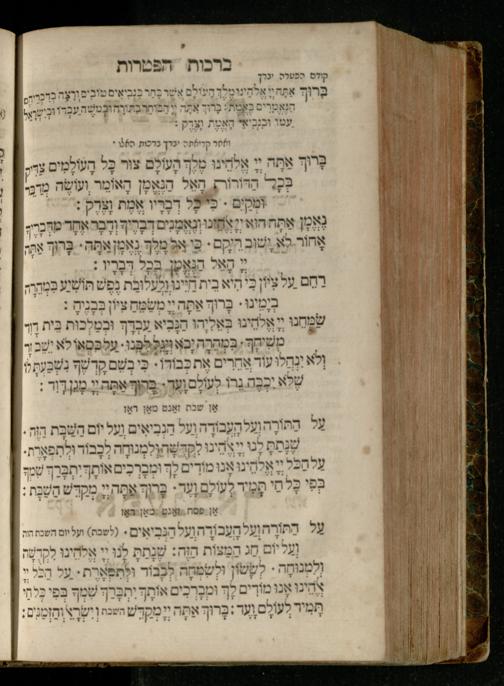 ברכות הפטרות
קודם הפטרה יברך
בָּרוּךְ אַתָּה יְיָ אֱלֹהֵינוּ מֶלֶךְ הָעוֹלָם אֲשֶׁר בָּחַר בִּנְבִיאִים טוֹבִים וְרָצָה בְדִבְרֵיהֶם
הַנֶּאֱמָרִים בֶּאֱמֶת: בָּרוּךְ אַתָּה יְיָ הַבּוֹחֵר בַּתּוֹרָה וּבְמֹשֶׁה עַבְדּוֹ וּבְיִשְׂרָאֵל
עַמּוֹ וּבִנְבִיאֵי הָאֱמֶת וָצֶדֶק:
ואחר קריאתה יברך ברכות האלו·
בָּרוּךְ אַתָּה יְיָ אֱלֹהֵינוּ מֶלֶךְ הָעוֹלָם צוּר כָּל הָעוֹלָמִים צַדִּיק
בְּכָל הַדּוֹרוֹת הָאֵל הַנֶּאֱמָן הָאוֹמֵר וְעוֹשֶׂה מְדַבֵּר
וּמְקַיֵּם · כִּי כָל דְּבָרָיו אֱמֶת וָצֶדֶק:
נֶאֱמָן אַתָּה הוּא יְיָ אֱלֹהֵינוּ וְנֶאֱמָנִים דְּבָרֶיךָ וְדָבָר אֶחָד מִדְּבָרֶיךָ
אָחוֹר לֹא יָשׁוּב רֵיקָם · כִּי אֵל מֶלֶךְ נֶאֱמָן אָתָּה · בָּרוּךְ אַתָּה
יְיָ הָאֵל הַנֶּאֱמָן בְּכָל דְּבָרָיו:
רַחֵם עַל צִיּוֹן כִּי הִיא בֵּית חַיֵּינוּ וְלַעֲלוּבַת נֶפֶשׁ תּוֹשִׁיעַ בִּמְהֵרָה
בְיָמֵינוּ · בָּרוּךְ אַתָּה יְיָ מְשַׂמֵּחַ צִיּוֹן בְּבָנֶיהָ:
שַׂמְּחֵנוּ יְיָ אֱלֹהֵינוּ בְּאֵלִיָּהוּ הַנָּבִיא עַבְדֶּךָ וּבְמַלְכוּת בֵּית דָּוִד
מְשִׁיחֶךָ · בִּמְהֵרָה יָבֹא וְיָגֵל לִבֵּנוּ · עַל כִּסְאוֹ לֹא יֵשֶׁב זָר
וְלֹא יִנְחֲלוּ עוֹד אֲחֵרִים אֶת כְּבוֹדוֹ · כִּי בְשֵׁם קָדְשְׁךָ נִשְׁבַּעְתָּ לּוֹ
שֶׁלֹּא יִכְבֶּה נֵרוֹ לְעוֹלָם וָעֶד · בָּרוּךְ אַתָּה יְיָ מָגֵן דָּוִד:
אן שבת זאגט מאן דאז
עַל הַתּוֹרָה וְעַל הָעֲבוֹדָה וְעַל הַנְּבִיאִים וְעַל יוֹם הַשַּׁבָּת הַזֶּה ·
שֶׁנָּתַתָּ לָּנוּ יְיָ אֱלֹהֵינוּ לִקְדֻשָּׁה וְלִמְנוּחָה לְכָבוֹד וּלְתִפְאָרֶת ·
עַל הַכֹּל יְיָ אֱלֹהֵינוּ אָנוּ מוֹדִים לָךְ וּמְבָרְכִים אוֹתָךְ יִתְבָּרַךְ שִׁמְךָ
בְּפִי כָּל חַי תָּמִיד לְעוֹלָם וָעֶד · בָּרוּךְ אַתָּה יְיָ מְקַדֵּשׁ הַשַּׁבָּת:
אן פסח זאגט מאן דאז
עַל הַתּוֹרָה וְעַל הָעֲבוֹדָה וְעַל הַנְּבִיאִים · (לשבת) ועל יום השבת הזה
וְעַל יוֹם חַג הַמַּצּוֹת הַזֶּה: שֶׁנָּתַתָּ לָּנוּ יְיָ אֱלֹהֵינוּ לִקְדֻשָּׁה
וְלִמְנוּחָה · לְשָׂשׂוֹן וּלְשִׂמְחָה לְכָבוֹד וּלְתִפְאָרֶת · עַל הַכֹּל יְיָ
אֱלֹהֵינוּ אָנוּ מוֹדִים לָךְ וּמְבָרְכִים אוֹתָךְ יִתְבָּרַךְ שִׁמְךָ בְּפִי כָּל חַי
תָּמִיד לְעוֹלָם וָעֶד: בָּרוּךְ אַתָּה יְיָ מְקַדֵּשׁ השבת וְיִשְׂרָאֵל וְהַזְּמַנִּים: